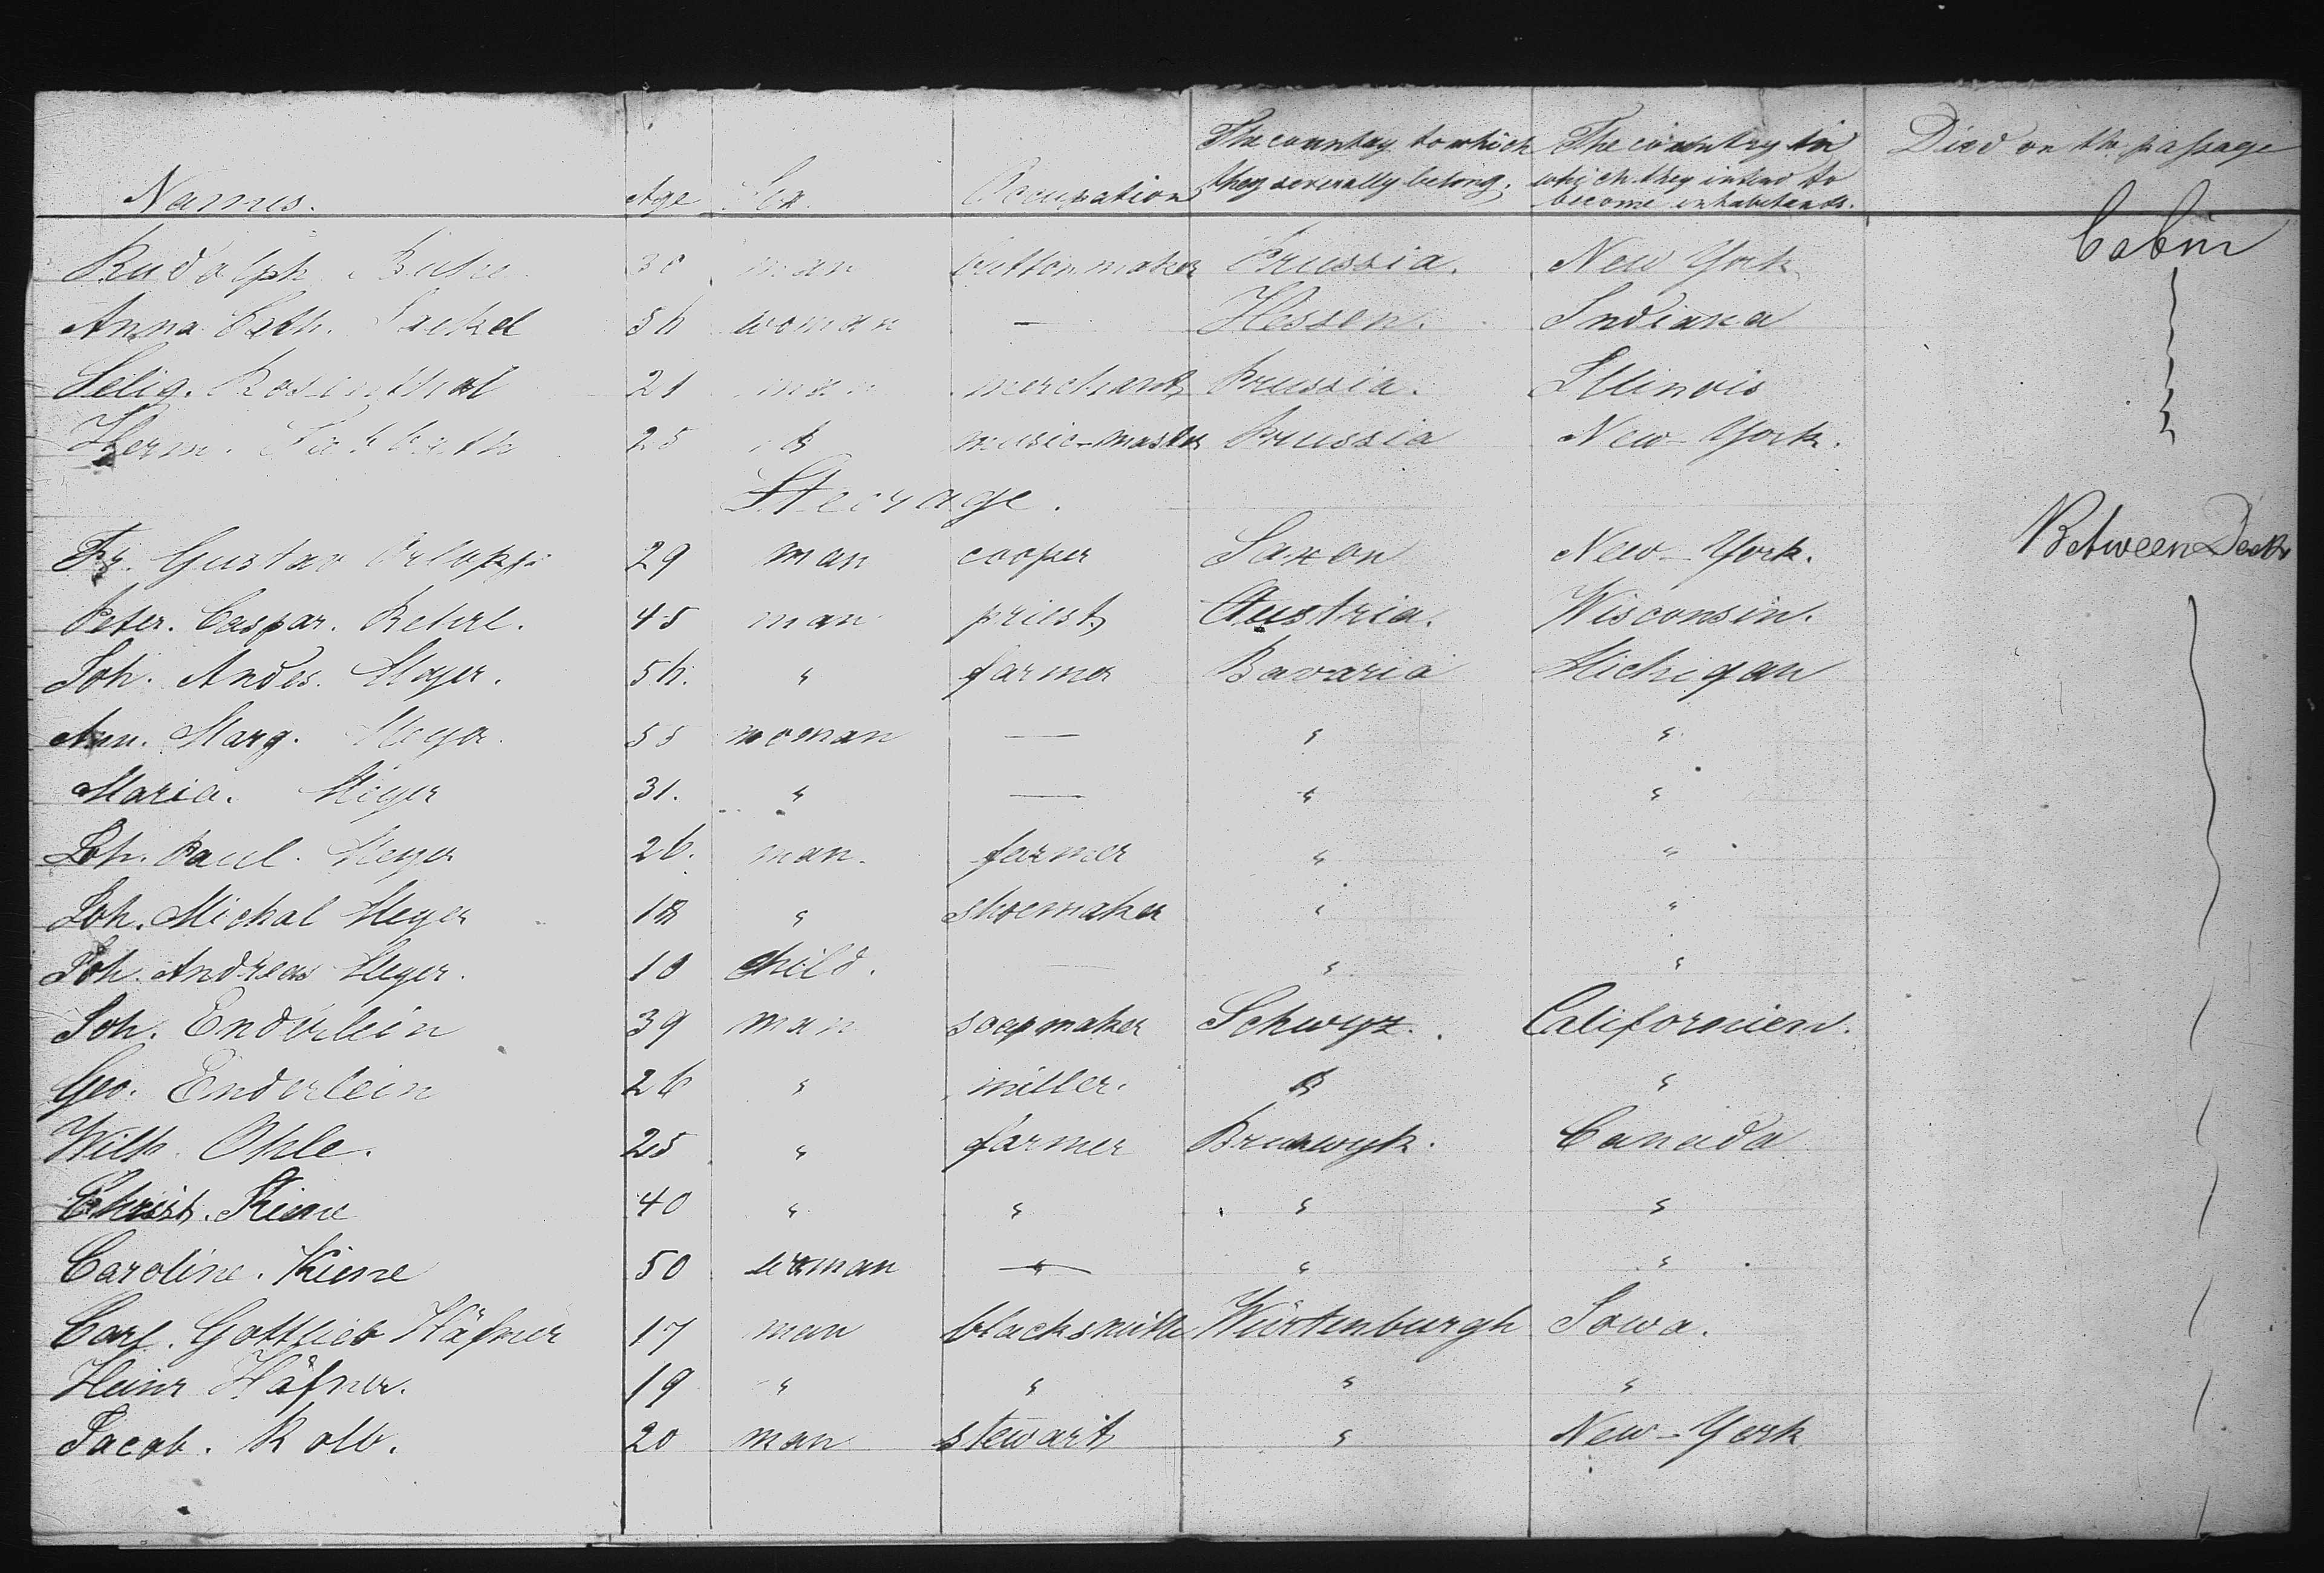 Names. Age Sex. Occupation The country to which they severally belong. The country in which they intend to become inhabitands. Died on the passage
Cabin
Rudolph 30 man buttonmaker Prussia. New York
Anna Cath. 56 woman — Hessen. Indiana
Selig. Rosenthal 21 man merchant Prussia. Illinois
Herm. 25 music-master Prussia New-York.
Steerage. Between Decks
Fr. Gustav 29 man cooper Saxon New-York.
Peter. Caspar. Rehrl. 45 man priest Austria. Wisconsin.
Joh. Andes. Meyer. 56. " farmer Bavaria Michigan
Ann. Marg. Meyer. 55 woman — " "
Maria. Meyer 31. " — " "
Joh. Paul. Meyer 26. man. farmer " "
Joh. Michal Meyer 18 " shoemaker " "
Joh. Andreas Meyer. 10 Child. — " "
Joh. Enderlein 39 man soapmaker Schwyz. Californien.
Geo. Enderlein 26 " miller. "
Wilh. Ohle. 25 " farmer Brunwyk. Canada
Christ. Kiene 40 " " " "
Caroline. Kiene 50 woman — " "
Carl. Gottlieb Häfner 17 man blacksmith Würtenburgh Iowa.
Heinr Häfner. 19 " " " "
Jacob. Kolb. 20 man stewart " New-York